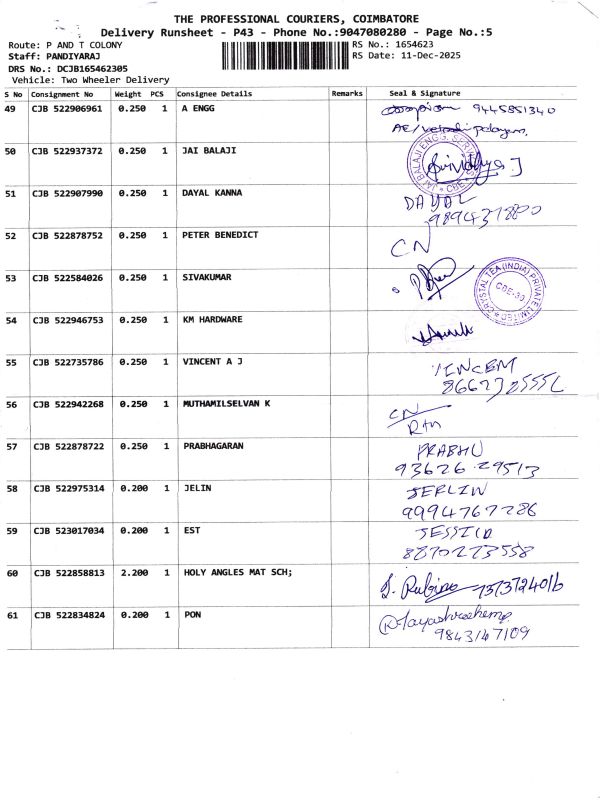 THE PROFESSIONAL COURIERS, COIMBATORE
Delivery Runsheet - P43 - Phone No.:9047080280 - Page No.:5
Route: P AND T COLONY
RS No.: 1654623
Staff: PANDIYARAJ
RS Date: 11-Dec-2025
DRS No.: DCJB165462305
Vehicle: Two Wheeler Delivery
S No Consignment No Weight PCS Consignee Details Remarks Seal & Signature
49 CJB 522906961 0.250 1 A ENGG 9445851340
50 CJB 522937372 0.250 1 JAI BALAJI
JAI BALAJI ENGG. SERVICES
51 CJB 522907990 0.250 1 DAYAL KANNA DAYAL
52 CJB 522878752 0.250 1 PETER BENEDICT CN
53 CJB 522584026 0.250 1 SIVAKUMAR
CRYSTAL TEA (INDIA) PRIVATE LIMITED
COE-30
54 CJB 522946753 0.250 1 KM HARDWARE
55 CJB 522735786 0.250 1 VINCENT A J
56 CJB 522942268 0.250 1 MUTHAMILSELVAN K CN
57 CJB 522878722 0.250 1 PRABHAGARAN PRABHU
93626 29513
58 CJB 522975314 0.200 1 JELIN JERLIN
9994767286
59 CJB 523017034 0.200 1 EST
8870273558
60 CJB 522858813 2.200 1 HOLY ANGLES MAT SCH; 7373724016
61 CJB 522834824 0.200 1 PON
9843147109